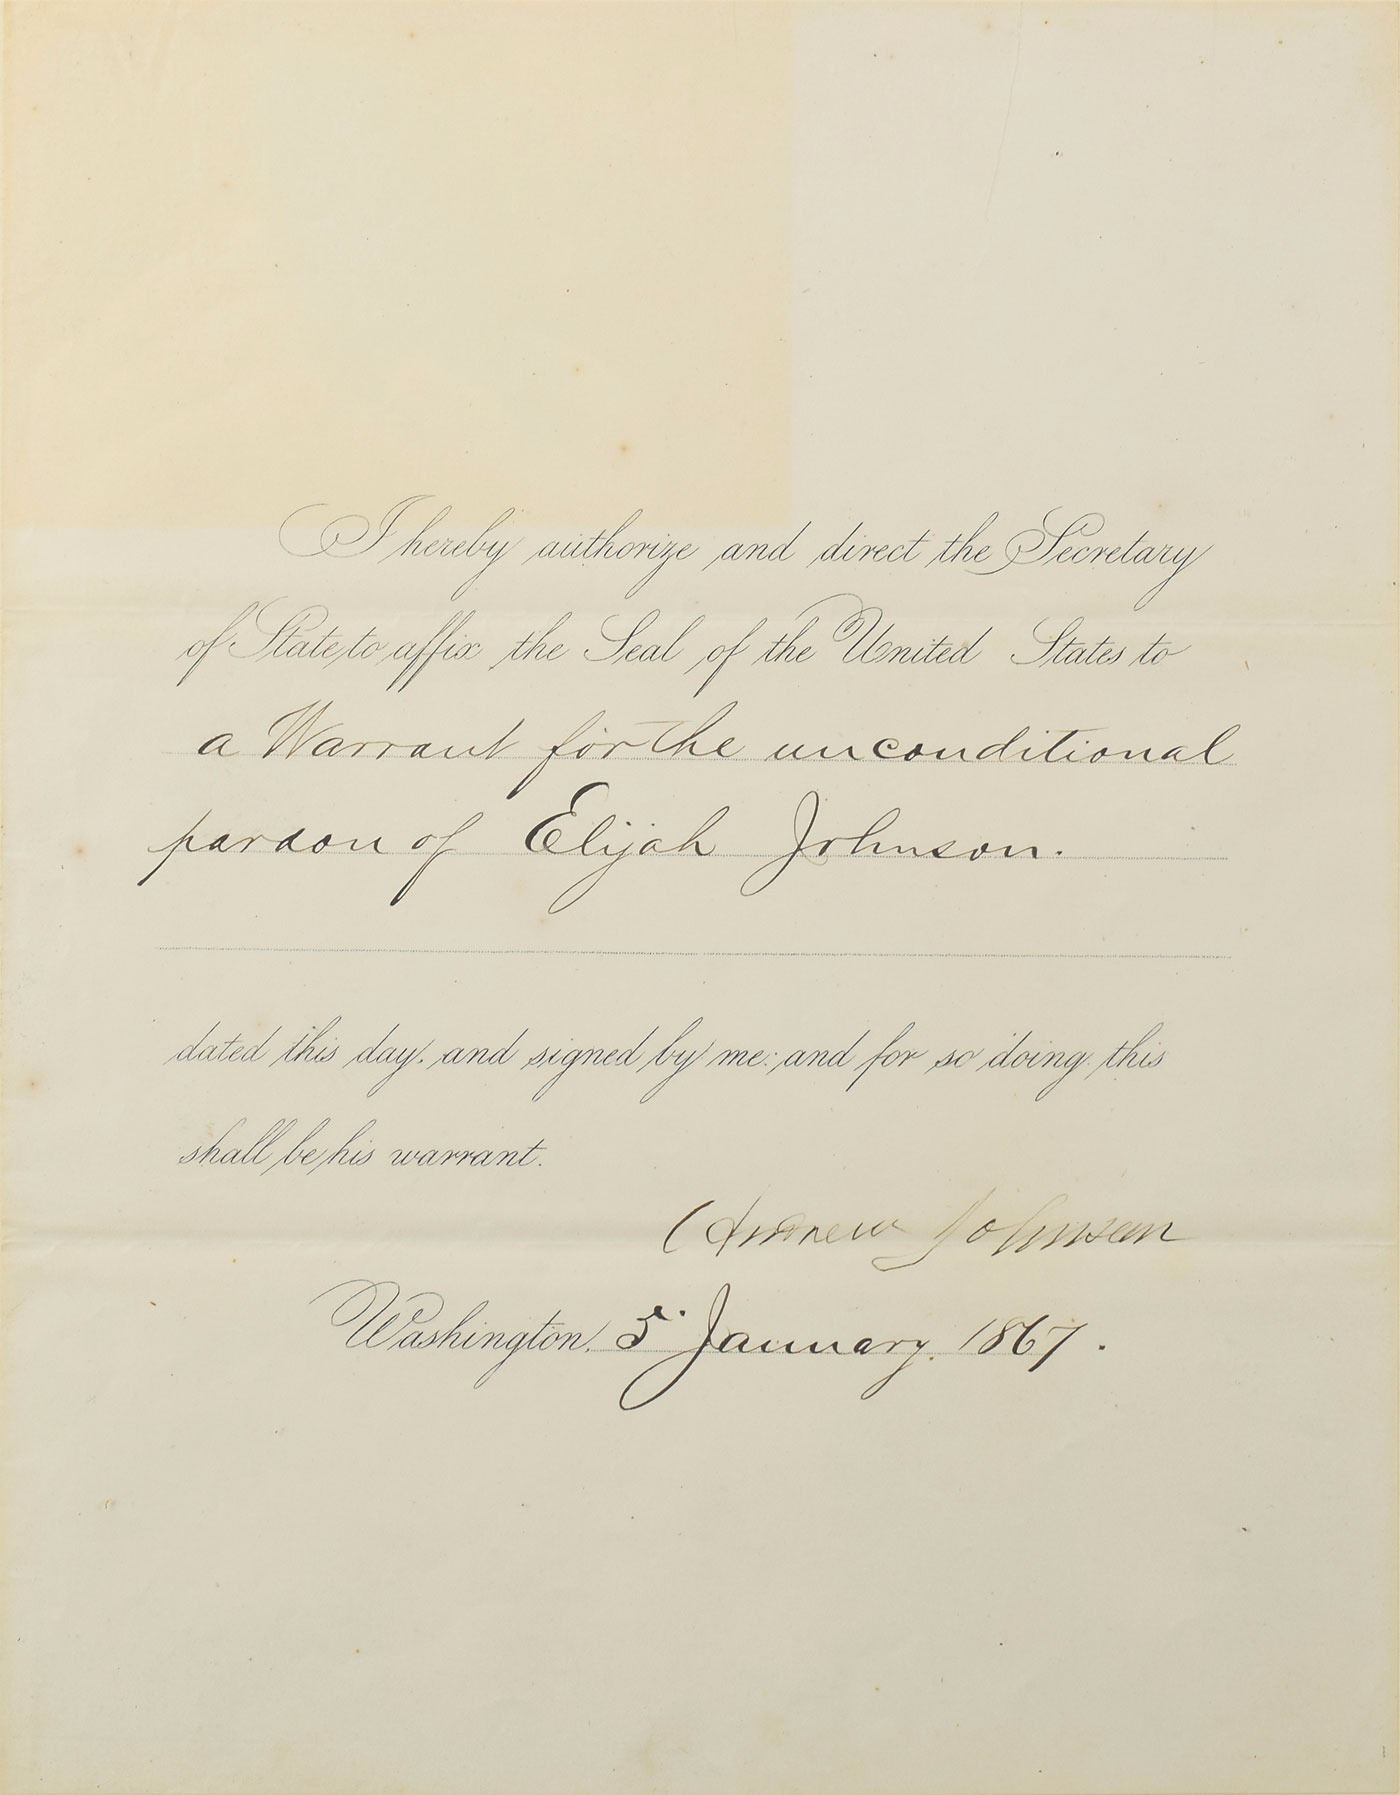 I hereby authorize and direct the Secretary
of State to affix the Seal of the United States to
a Warrant for the unconditional
pardon of Elijah Johnson.
dated this day, and signed by me: and for so doing this
shall be his warrant.
Andrew Johnson
Washington, 5 January, 1867.